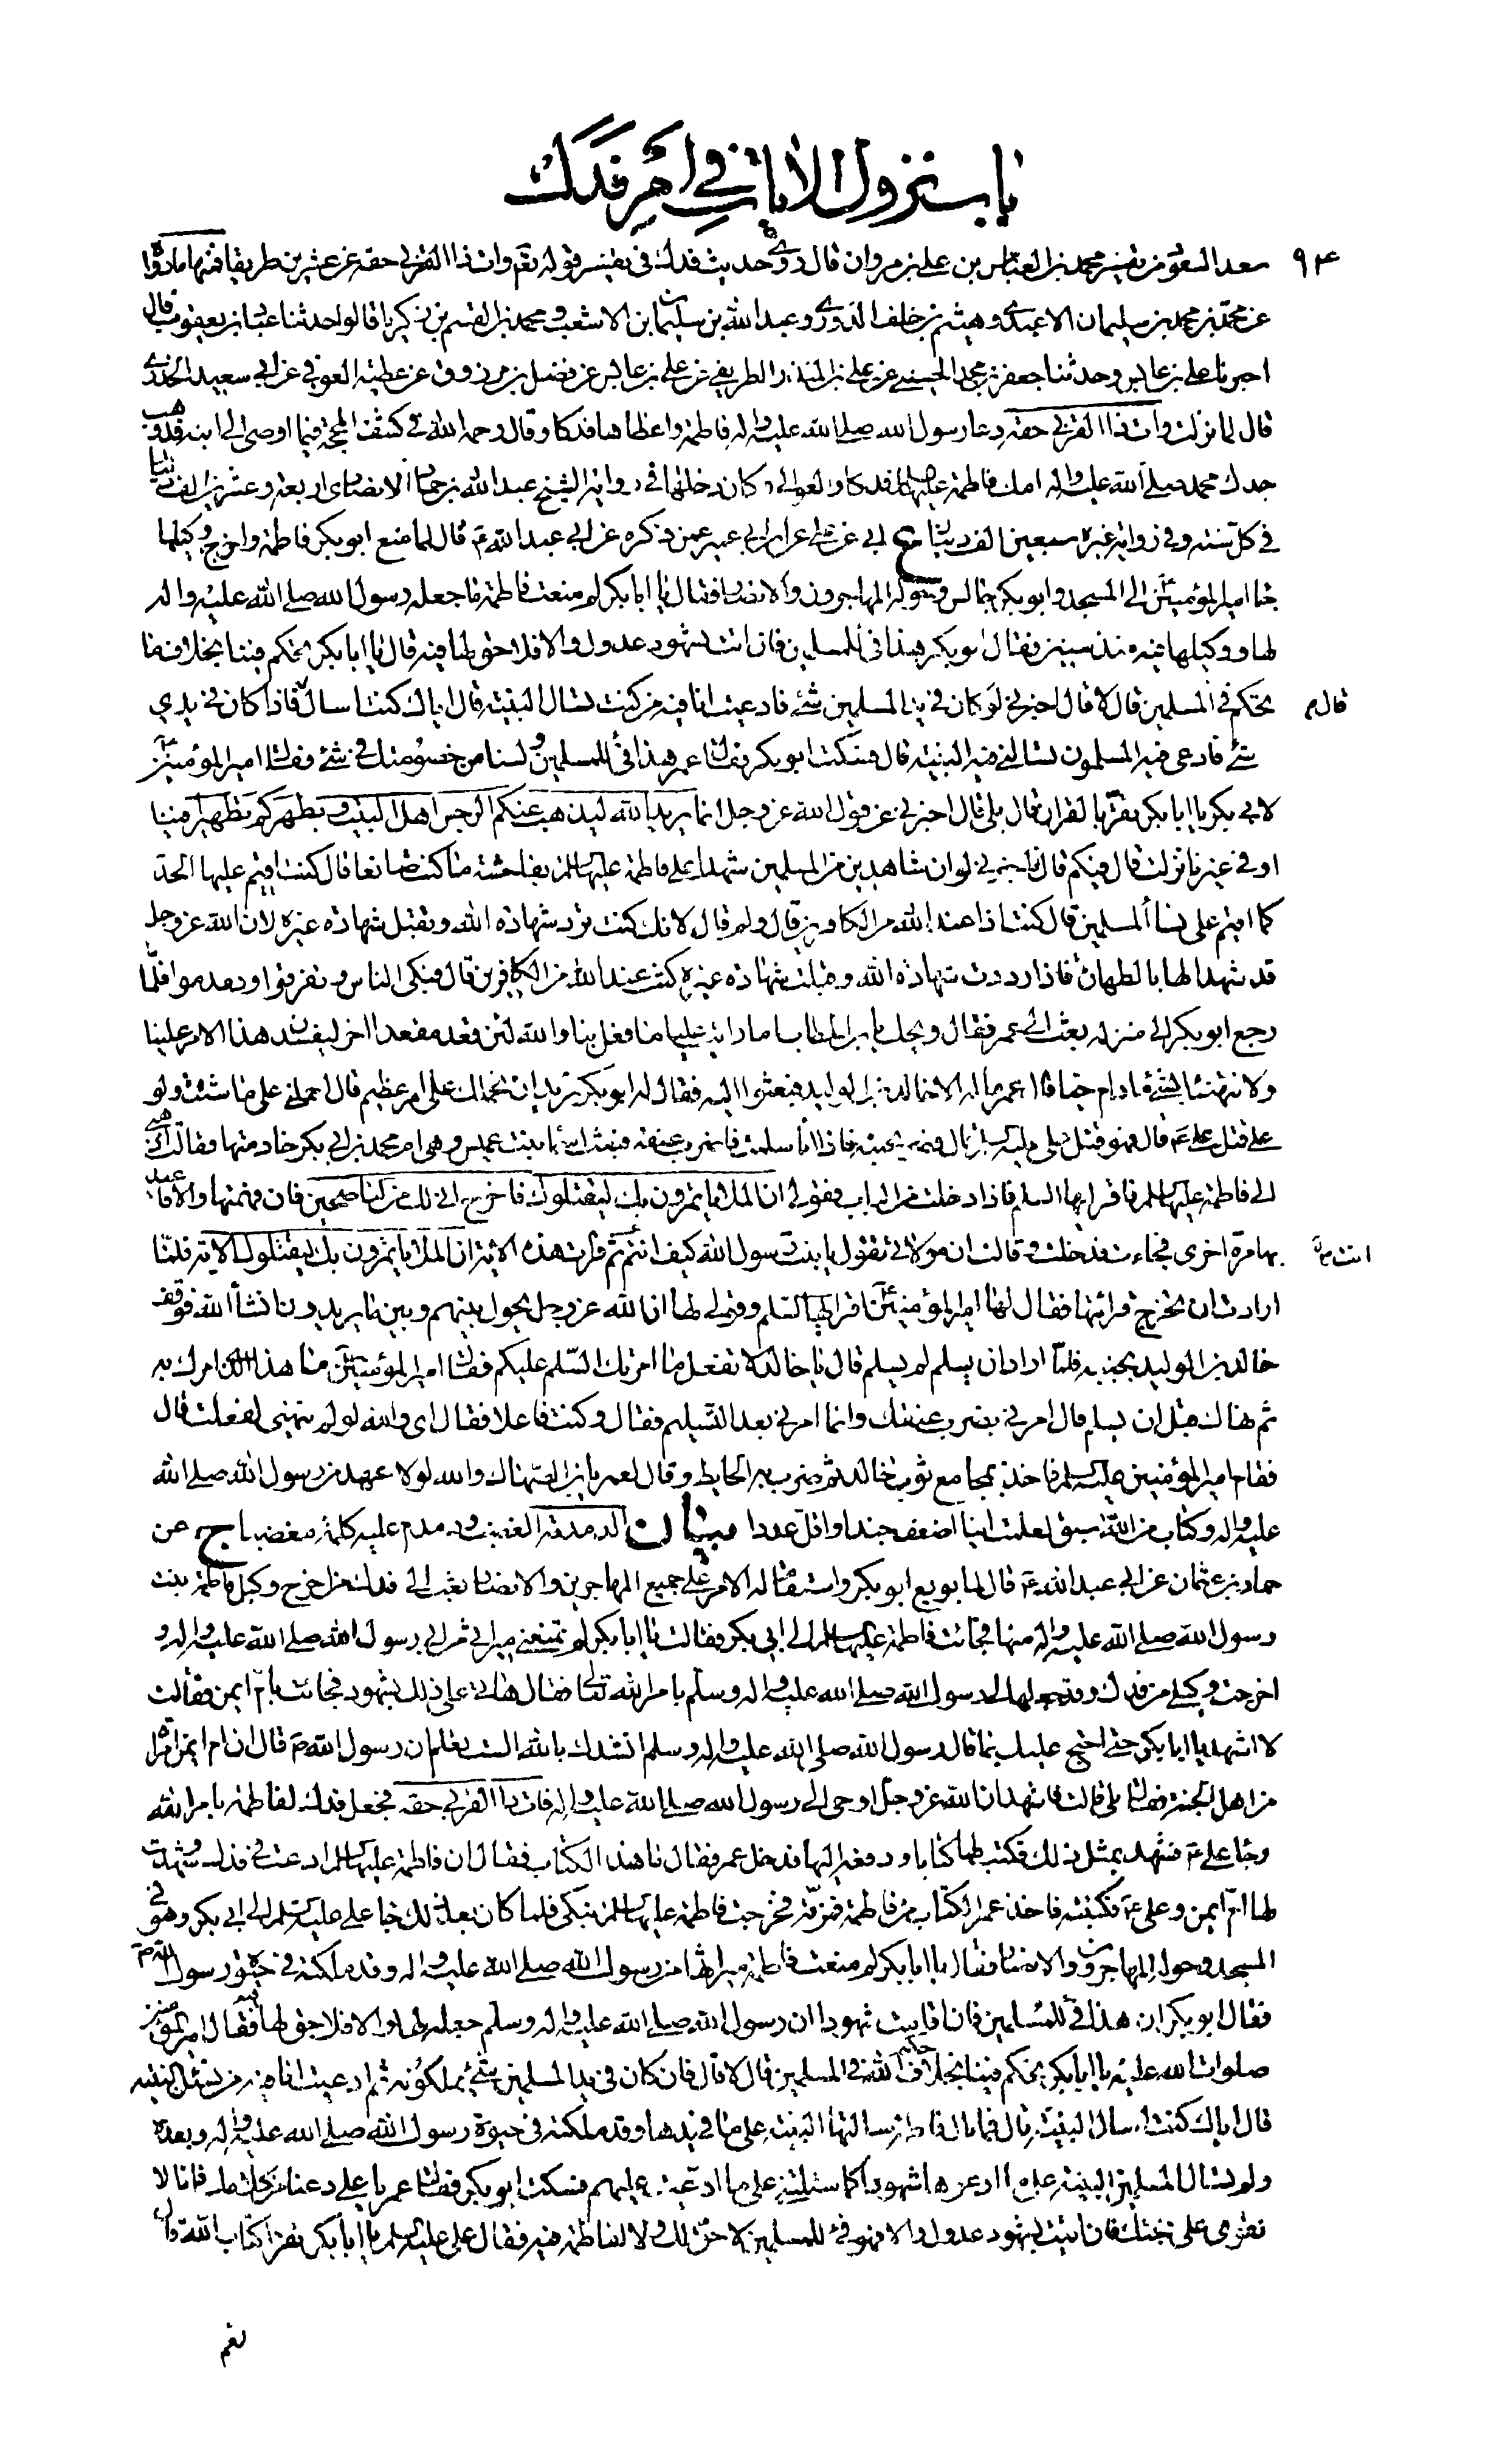 باب نزول الايات في امر فدك
٩٤ سعد السعود من تفسير محمد بن العباس بن علي بن مروان قال روى حديث فدك في تفسير قوله تعم وات ذا القربى حقه عن عشرين طريقا فمنها ما رواه
عن محمد بن محمد بن سليمان الاعبدي وهيثم بن خلف الدوري وعبد الله بن سليمان بن الاشعث ومحمد بن القسم بن زكريا قالوا حدثنا عباد بن يعقوب قال
اخبرنا علي بن عابس وحدثنا جعفر بن محمد الحسيني عن علي بن المنذر الطريفي عن علي بن عابس عن فضل بن مرزوق عن عطية العوفي عن ابي سعيد الخدري
قال لما نزلت وات ذا القربى حقه دعا رسول الله صلى الله عليه واله فاطمة واعطاها فدكا وقال رحمه الله في كشف المحجة فيما اوصى الى ابنه قد وهب
جدك محمد صلى الله عليه واله امك فاطمة عليها السلم فدكا والعوالي وكان دخلها في رواية الشيخ عبد الله بن حماد الانصاري اربعة وعشرين الف دينار
في كل سنة وفي رواية غيره سبعين الف دينار ع ابي عن ابن ابي عمير عمن ذكره عن ابي عبد الله ع قال لما منع ابو بكر فاطمة واخرج وكيلها
جاء امير المؤمنين ع الى المسجد وابو بكر جالس وحوله المهاجرون والانصار فقال يا ابا بكر لم منعت فاطمة ما جعله رسول الله صلى الله عليه واله
لها ووكيلها فيه منذ سنين فقال ابو بكر هذا فئ للمسلمين فان اتت بشهود عدول والا فلا حق لها فيه قال يا ابا بكر تحكم فينا بخلاف ما
تحكم في المسلمين قال لا قال اخبرني لو كان في يد المسلمين شئ فادعيت انا فيه من كنت تسال البينة قال اياك كنت اسال قال فاذا كان في يدي
شئ فادعى فيه المسلمون تسالني فيه البينة قال فسكت ابو بكر فقال عمر هذا فئ للمسلمين ولسنا من خصومتك في شئ فقال امير المؤمنين ع
لابي بكر يا ابا بكر تقر بالقران قال بلى قال اخبرني عن قول الله عز وجل انما يريد الله ليذهب عنكم الرجس اهل البيت ويطهركم تطهيرا فينا
او في غيرنا نزلت قال فيكم قال فاخبرني لو ان شاهدين من المسلمين شهدا على فاطمة عليها السلم بفاحشة ما كنت صانعا قال كنت اقيم عليها الحد
كما اقيم على نساء المسلمين قال كنت اذا عند الله من الكافرين قال ولم قال لانك كنت ترد شهادة الله وتقبل شهادة غيره لان الله عز وجل
قد شهد لها بالطهارة فاذا رددت شهادة الله وقبلت شهادة غيره كنت عند الله من الكافرين قال فبكى الناس وتفرقوا ودمدموا فلما
رجع ابو بكر الى منزله بعث الى عمر فقال ويحك يا بن الخطاب اما رايت عليا ما فعل بنا والله لئن قعد مقعدا اخر ليفسدن هذا الامر علينا
ولا نتهنا بشئ ما دام حيا قال عمر ما له الا خالد بن الوليد فبعثوا اليه فقال له ابو بكر نريد ان نحملك على امر عظيم قال احملني على ما شئت ولو
على قتل علي ع قال فهو قتل علي فصر بجنبه فاذا انا سلمت فاضرب عنقه فبعثت اسماء بنت عميس وهي ام محمد بن ابي بكر خادمتها فقالت اذهبي
الى فاطمة عليها السلم فاقرايها السلم فاذا دخلت من الباب فقولي ان الملا ياتمرون بك ليقتلوك فاخرج اني لك من الناصحين فان فهمتها والا فاعيدي
بها مرة اخرى فجاءت فدخلت وقالت ان مولاتي تقول يا بنت رسول الله كيف انتم ثم قرات هذه الاية ان الملا ياتمرون بك ليقتلوك الاية فلما
ارادت ان تخرج قراتها فقال لها امير المؤمنين ع اقرايها السلم وقولي لها ان الله عز وجل يحول بينهم وبين ما يريدون ان شاء الله فوقف
خالد بن الوليد بجنبه فلما اراد ان يسلم لم يسلم قال يا خالد لا تفعل ما امرتك السلم عليكم فقال امير المؤمنين ع ما هذا الذي امرك به
ثم نهاك قبل ان يسلم قال امرني بضرب عنقك وانما امرني بعد التسليم فقال وكنت فاعلا فقال اي والله لو لم ينهني لفعلت قال
فقام امير المؤمنين عليه السلم فاخذ بمجامع ثوب خالد ثم ضرب به الحايط وقال لعمر يا بن الصهاك والله لولا عهد من رسول الله صلى الله
عليه واله وكتاب من الله سبق لعلمت اينا اضعف جندا واقل عددا بيان الدمدمة الغضب ودمدم عليه كلمه مغضبا ج عن
حماد بن عثمان عن ابي عبد الله ع قال لما بويع ابو بكر واستقام له الامر على جميع المهاجرين والانصار بعث الى فدك من اخرج وكيل فاطمة بنت
رسول الله صلى الله عليه واله منها فجائت فاطمة عليها السلم الى ابي بكر فقالت يا ابا بكر لم تمنعني ميراثي من ابي رسول الله صلى الله عليه واله و
اخرجت وكيلي من فدك وقد جعلها لي رسول الله صلى الله عليه واله وسلم بامر الله تعالى فقال هاتي على ذلك بشهود فجائت بام ايمن فقالت
لا اشهد يا ابا بكر حتى احتج عليك بما قال رسول الله صلى الله عليه واله وسلم انشدك بالله الست تعلم ان رسول الله ص قال ان ام ايمن امراة
من اهل الجنة فقال بلى قالت فاشهد ان الله عز وجل اوحى الى رسول الله صلى الله عليه واله فات ذا القربى حقه فجعل فدك لفاطمة بامر الله
وجاء علي ع فشهد بمثل ذلك فكتب لها كتابا ودفعه اليها فدخل عمر فقال ما هذا الكتاب فقال ان فاطمة عليها السلم ادعت في فدك وشهدت
لها ام ايمن وعلي ع فكتبته فاخذ عمر الكتاب من فاطمة فمزقه فخرجت فاطمة عليها السلم تبكي فلما كان بعد ذلك جاء علي عليه السلم الى ابي بكر وهو في
المسجد وحوله المهاجرون والانصار فقال يا ابا بكر لم منعت فاطمة ميراثها من رسول الله صلى الله عليه واله وقد ملكته في حيوة رسول الله ص
فقال ابو بكر ان هذا فئ للمسلمين فان اقامت شهودا ان رسول الله صلى الله عليه واله وسلم جعله لها والا فلا حق لها فيه فقال امير المؤمنين
صلوات الله عليه يا ابا بكر تحكم فينا بخلاف حكم الله في المسلمين قال لا قال فان كان في يد المسلمين شئ يملكونه ثم ادعيت انا فيه من تسئل البينة
قال اياك كنت اسال البينة قال فما بال فاطمة سالتها البينة على ما في يدها وقد ملكته في حيوة رسول الله صلى الله عليه واله وبعده
ولم تسال المسلمين البينة على ما ادعوها شهودا كما سئلتني على ما ادعيت عليهم فسكت ابو بكر فقال عمر يا علي دعنا من كلامك فانا لا
نقوى على حجتك فان اتيت بشهود عدول والا فهو فئ للمسلمين لا حق لك ولا لفاطمة فيه فقال علي عليه السلم يا ابا بكر تقرا كتاب الله قال
نعم
قال م
انت ص